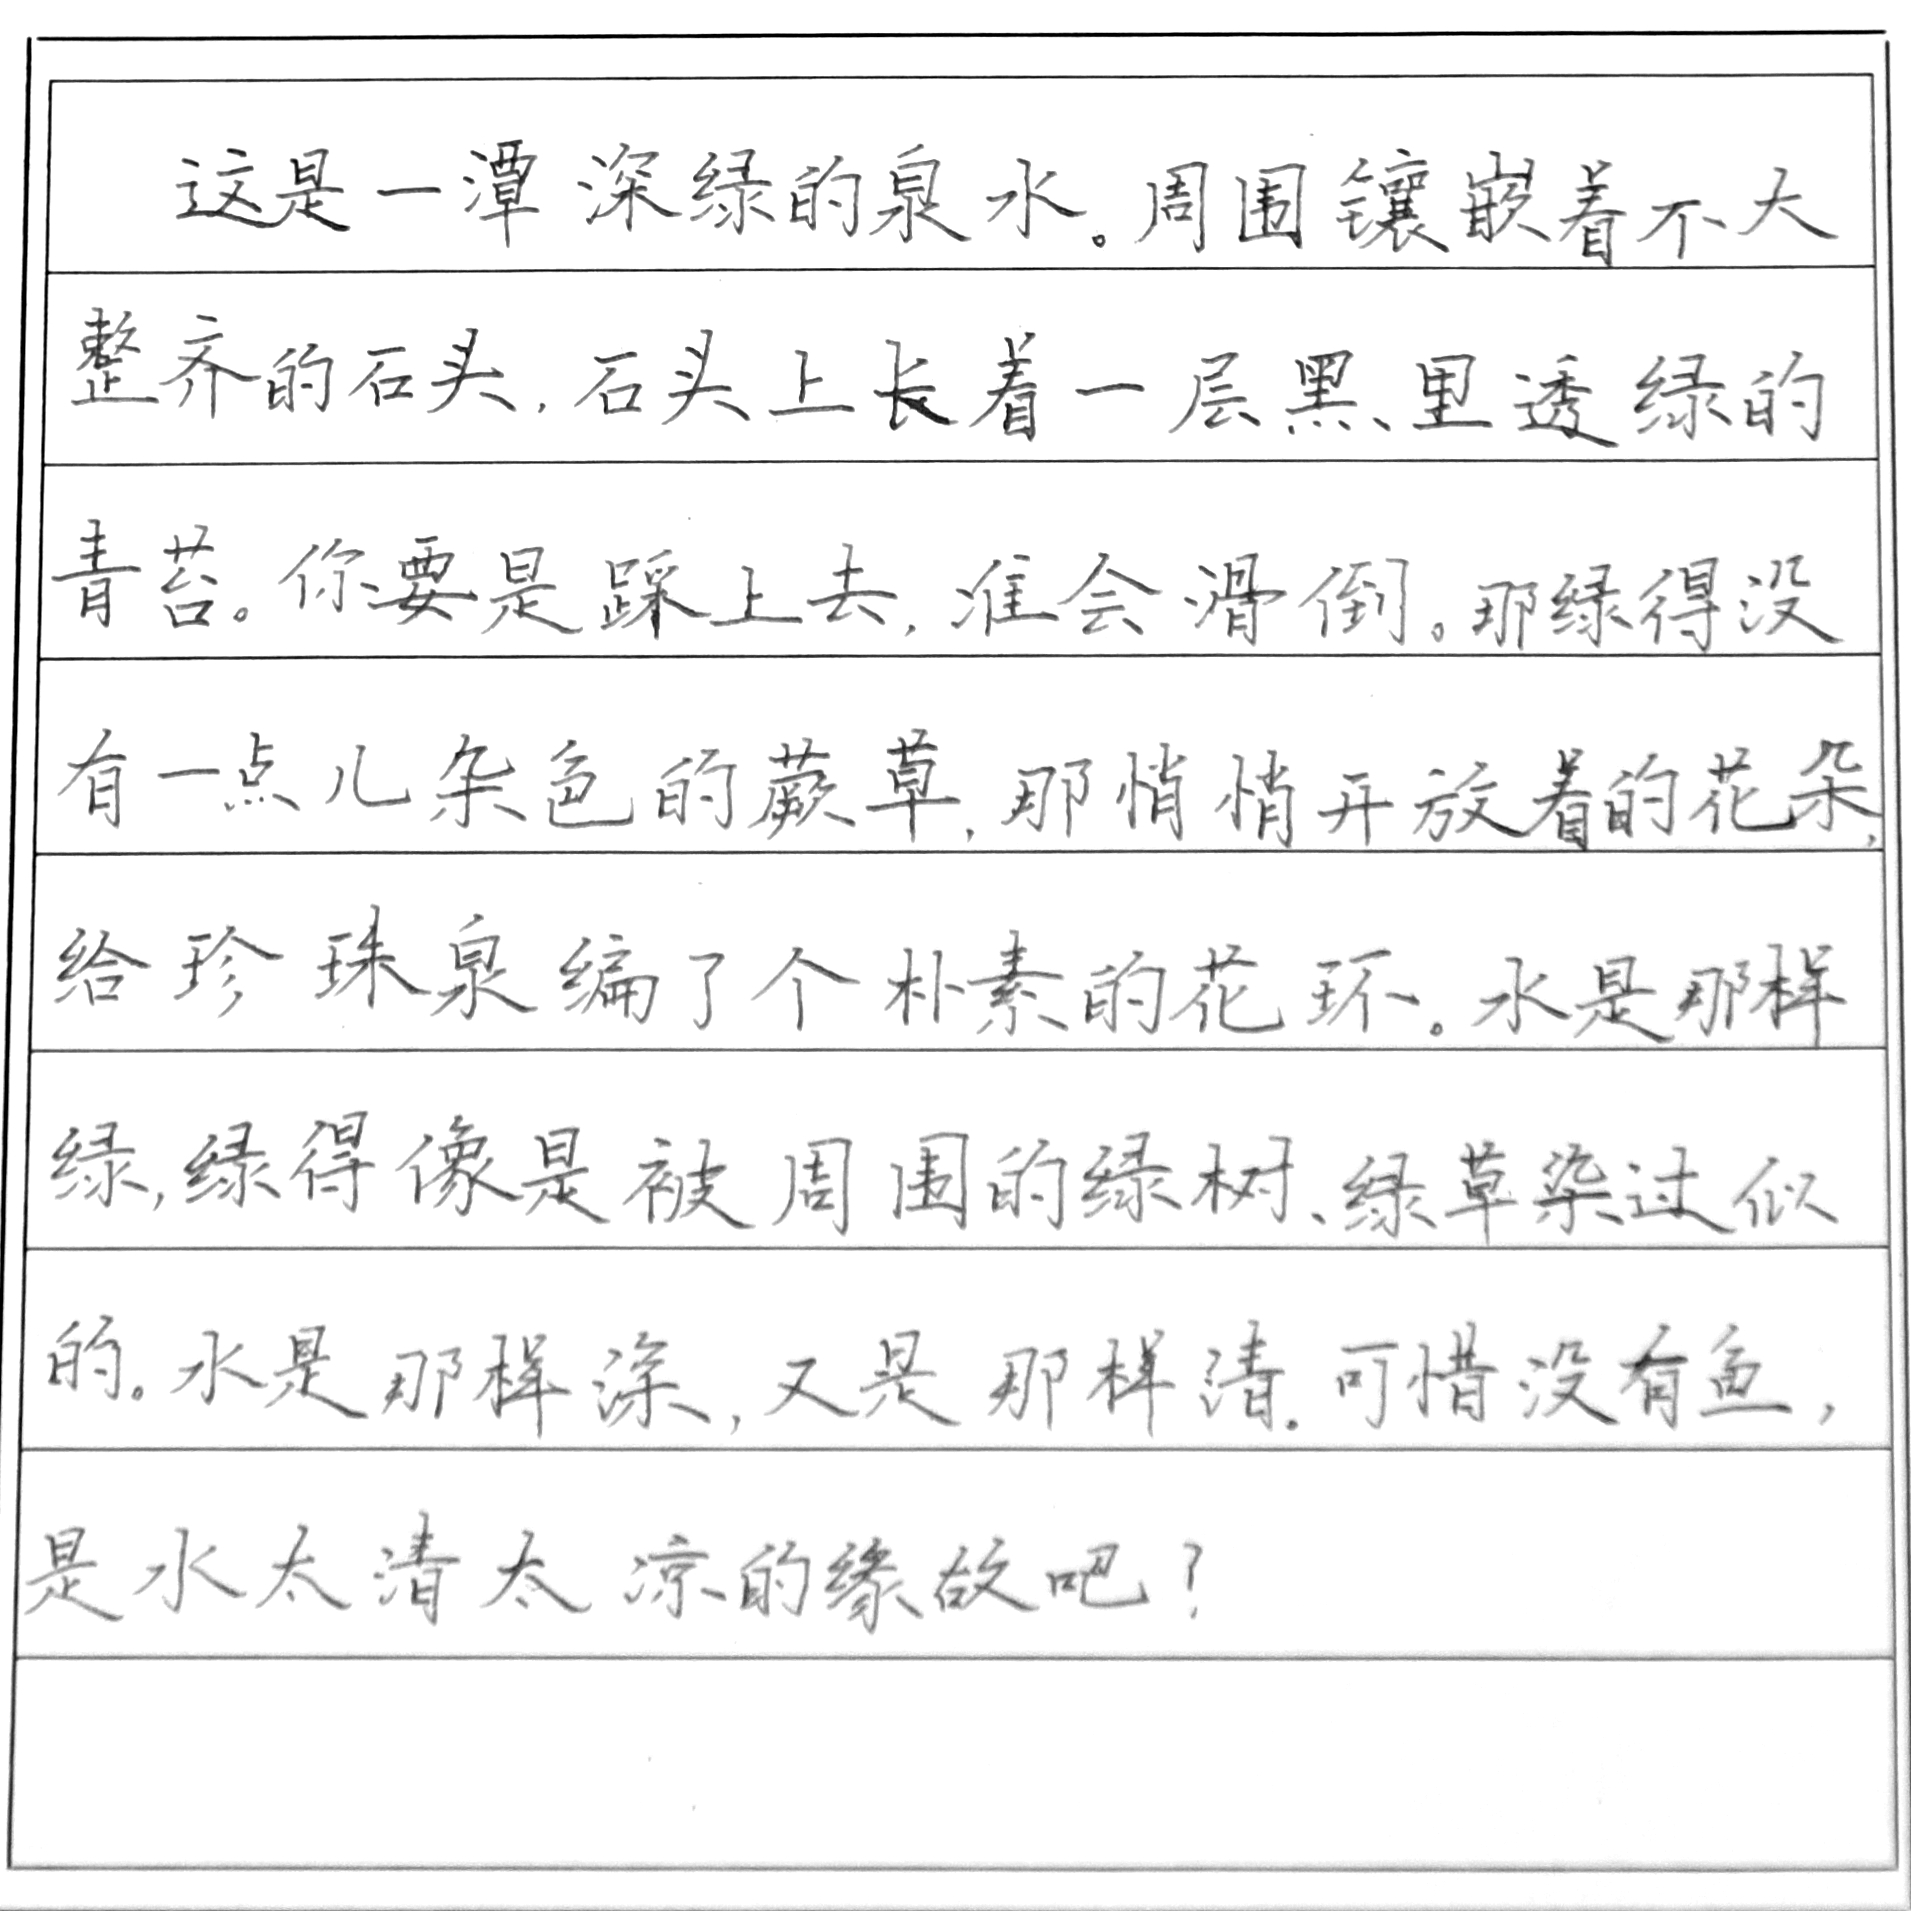 这是一潭深绿的泉水。周围镶嵌着不大
整齐的石头,石头上长着一层黑里透绿的
青苔。你要是踩上去,准会滑倒。那绿得没
有一点儿杂色的蕨草,那悄悄开放着的花朵,
给珍珠泉编了个朴素的花环。水是那样
绿,绿得像是被周围的绿树、绿草染过似
的。水是那样深,又是那样清。可惜没有鱼,
是水太清太凉的缘故吧?